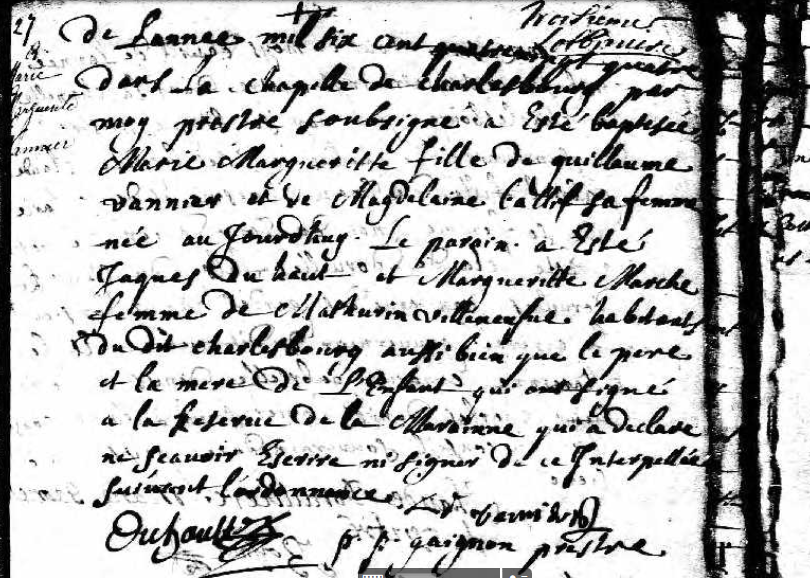 27
B
Marie
Marguerite
vannier
troisieme
octobre
de Lannee mil six cent quatre vingt quatre
dans La chapelle de charlesbourg par
moy prestre soubsigné a Esté baptisée
Marie Margueritte fille de guillaume
vannier et de Magdelaine baillif sa femme
née au Jourdhuy. Le parain a Esté
Jaques Duhaut et Margueritte Marche
femme de Mathurin villeneufue habitants
du dit charlesbourg aussi bien que le pere
et la mere de L'Enfant qui ont signé
a la Reserue de la Maraine qui a declare
ne scauoir Escrire ni signer de ce Interpellée
suiuant l'ordonnance. vannier
Duhault
p. p. gaignon prestre